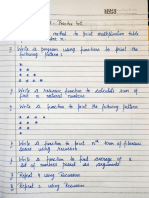 Practice Set
method to print multiplication table
Write a program using functions to print the
following pattern:
*
* *
* * *
* * * *
Write a recursive function to calculate sum of
first n natural numbers
Write a function to print the following pattern
* * * *
* * *
* *
*
Write a function to print nth term of fibonacci
series using recursion
Write a function to find average of a
set of numbers passed as arguments
Repeat 4 using Recursion
Repeat 2 using Recursion